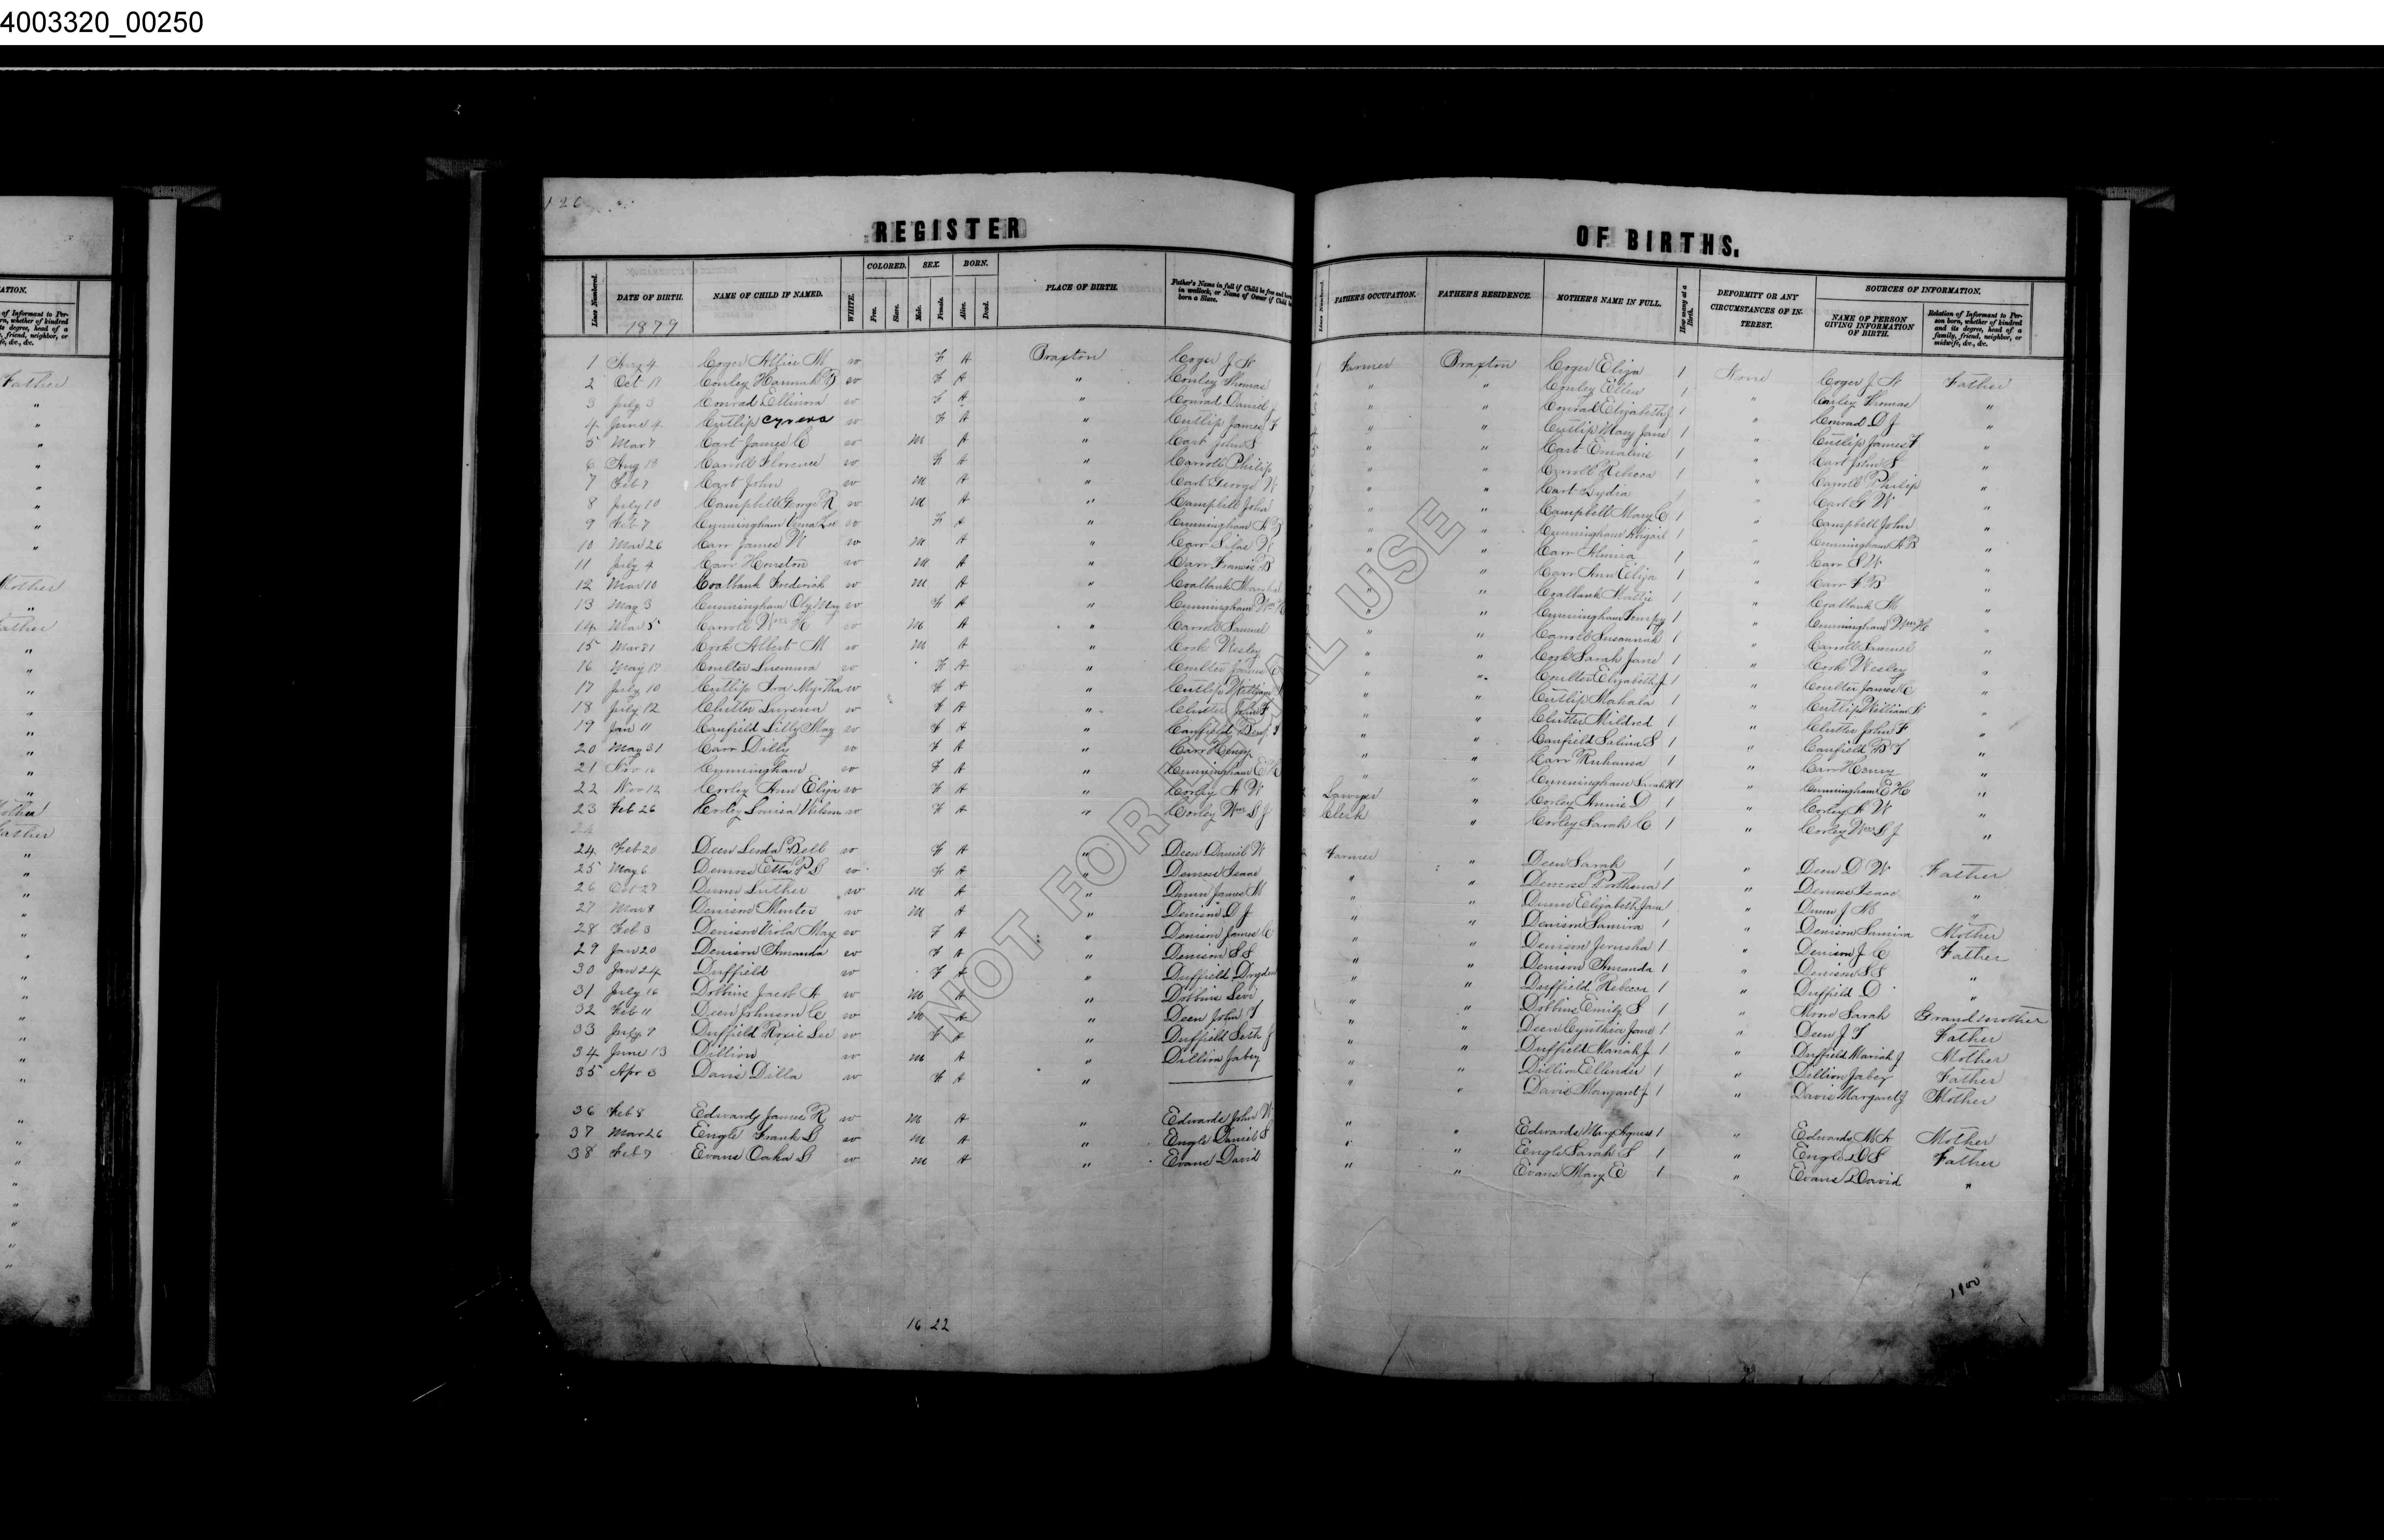 4003320_00250
126
REGISTER OF BIRTHS.
Lines Numbered. DATE OF BIRTH. NAME OF CHILD IF NAMED. WHITE. COLORED. Free. Slave. SEX. Male. Female. BORN. Alive. Dead. PLACE OF BIRTH. Father's Name in full if Child be free and born in wedlock, or Name of Owner if Child be born a Slave. Lines Numbered. FATHER'S OCCUPATION. FATHER'S RESIDENCE. MOTHER'S NAME IN FULL. How many at a Birth. DEFORMITY OR ANY CIRCUMSTANCES OF INTEREST. SOURCES OF INFORMATION. NAME OF PERSON GIVING INFORMATION OF BIRTH. Relation of Informant to Person born, whether of kindred and its degree, head of a family, friend, neighbor, or midwife, &c., &c.
1879
1 Aug 4 Coger M w F A Braxton Coger J Farmer Braxton Coger Eliza 1 None Coger J Father
2 Oct Conley Hannah w F A " Conley Thomas " " Conley Ellen 1 " Conley Thomas "
3 July 3 Conrad w F A " Conrad Daniel J " " Conrad Elizabeth J 1 " Conrad D J "
4 June 4 Cutlip Cyrena w F A " Cutlip James F " " Cutlip Mary Jane 1 " Cutlip James F "
5 Mar 7 Cart James C w M A " Cart John S " " Cart Emaline 1 " Cart John S "
6 Aug 18 Carroll Florence w F A " Carroll Philip " " Carroll Rebecca 1 " Carroll Philip "
7 Feb 7 Cart John w M A " Cart George W " " Cart Lydia 1 " Cart G W "
8 July 10 Campbell George R w M A " Campbell John " " Campbell Mary C 1 " Campbell John "
9 Feb 7 Cunningham Lee w F A " Cunningham A B " " Cunningham Abigail 1 " Cunningham A B "
10 Mar 26 Carr James W w M A " Carr Silas W " " Carr Almira 1 " Carr S W "
11 July 4 Carr Houston w M A " Carr Francis B " " Carr Ann Eliza 1 " Carr F B "
12 Mar 10 Coalbank Frederick w M A " Coalbank " " Coalbank Hattie 1 " Coalbank M "
13 May 3 Cunningham May w F A " Cunningham Wm H " " Cunningham Tempy 1 " Cunningham Wm H "
14 Mar 5 Carroll Wm H w M A " Carroll Samuel " " Carroll Susannah 1 " Carroll Samuel "
15 Mar 31 Cook Albert M w M A " Cook Wesley " " Cook Sarah Jane 1 " Cook Wesley "
16 May 17 Coulter w F A " Coulter James C " " Coulter Elizabeth J 1 " Coulter James C "
17 July 10 Cutlip Ira Myrtha w F A " Cutlip William " " Cutlip Mahala 1 " Cutlip William "
18 July 12 Clutter Lurena w F A " Clutter John F " " Clutter Mildred 1 " Clutter John F "
19 Jan 11 Canfield Lilly May w F A " Canfield Benj. F " " Canfield Salina S 1 " Canfield B F "
20 May 31 Carr Dilly w F A " Carr Henry " " Carr Ruhama 1 " Carr Henry "
21 Nov 16 Cunningham w F A " Cunningham E H " " Cunningham Sarah 1 " Cunningham E H "
22 Nov 12 Corley Ann Eliza w F A " Corley A W Lawyer " Corley Annie D 1 " Corley A W "
23 Feb 26 Corley Louisa Wilson w F A " Corley Wm J Clerk " Corley Sarah C 1 " Corley Wm J "
24 Feb 20 Deen Lenda Bell w F A " Deen Daniel W Farmer " Deen Sarah 1 " Deen D W Father
25 May 6 Etta w F A " Isaac " " 1 " Isaac "
26 Oct 27 Luther w M A " James " " Elizabeth Jane 1 " J "
27 Mar 8 Denison Minter w M A " Denison D J " " Denison Samira 1 " Denison Samira Mother
28 Feb 3 Denison Viola May w F A " Denison James C " " Denison Jerusha 1 " Denison J C Father
29 Jan 20 Denison Amanda w F A " Denison S S " " Denison Amanda 1 " Denison S S "
30 Jan 24 Duffield w F A " Duffield Dryden " " Duffield Rebecca 1 " Duffield D "
31 July 16 Dobbins Jacob A w M A " Dobbins Levi " " Dobbins Emily S 1 " Sarah Grandmother
32 Feb 11 Deen Johnson C w M A " Deen John T " " Deen Cynthia Jane 1 " Deen J T Father
33 July 7 Duffield Roxie Lee w F A " Duffield Seth J " " Duffield Mariah J 1 " Duffield Mariah J Mother
34 June 13 Dillion w M A " Dillion Jabez " " Dillion Ellender 1 " Dillion Jabez Father
35 Apr 3 Davis Dilla w F A " " " Davis Margaret J 1 " Davis Margaret J Mother
36 Feb 8 Edwards James R w M A " Edwards John W " " Edwards Mary Agness 1 " Edwards M A Mother
37 Mar 26 Engle Frank w M A " Engle Daniel S " " Engle Sarah S 1 " Engle D S Father
38 Feb 7 Evans w M A " Evans David " " Evans Mary E 1 " Evans David "
16 22
1900
NOT FOR LEGAL USE